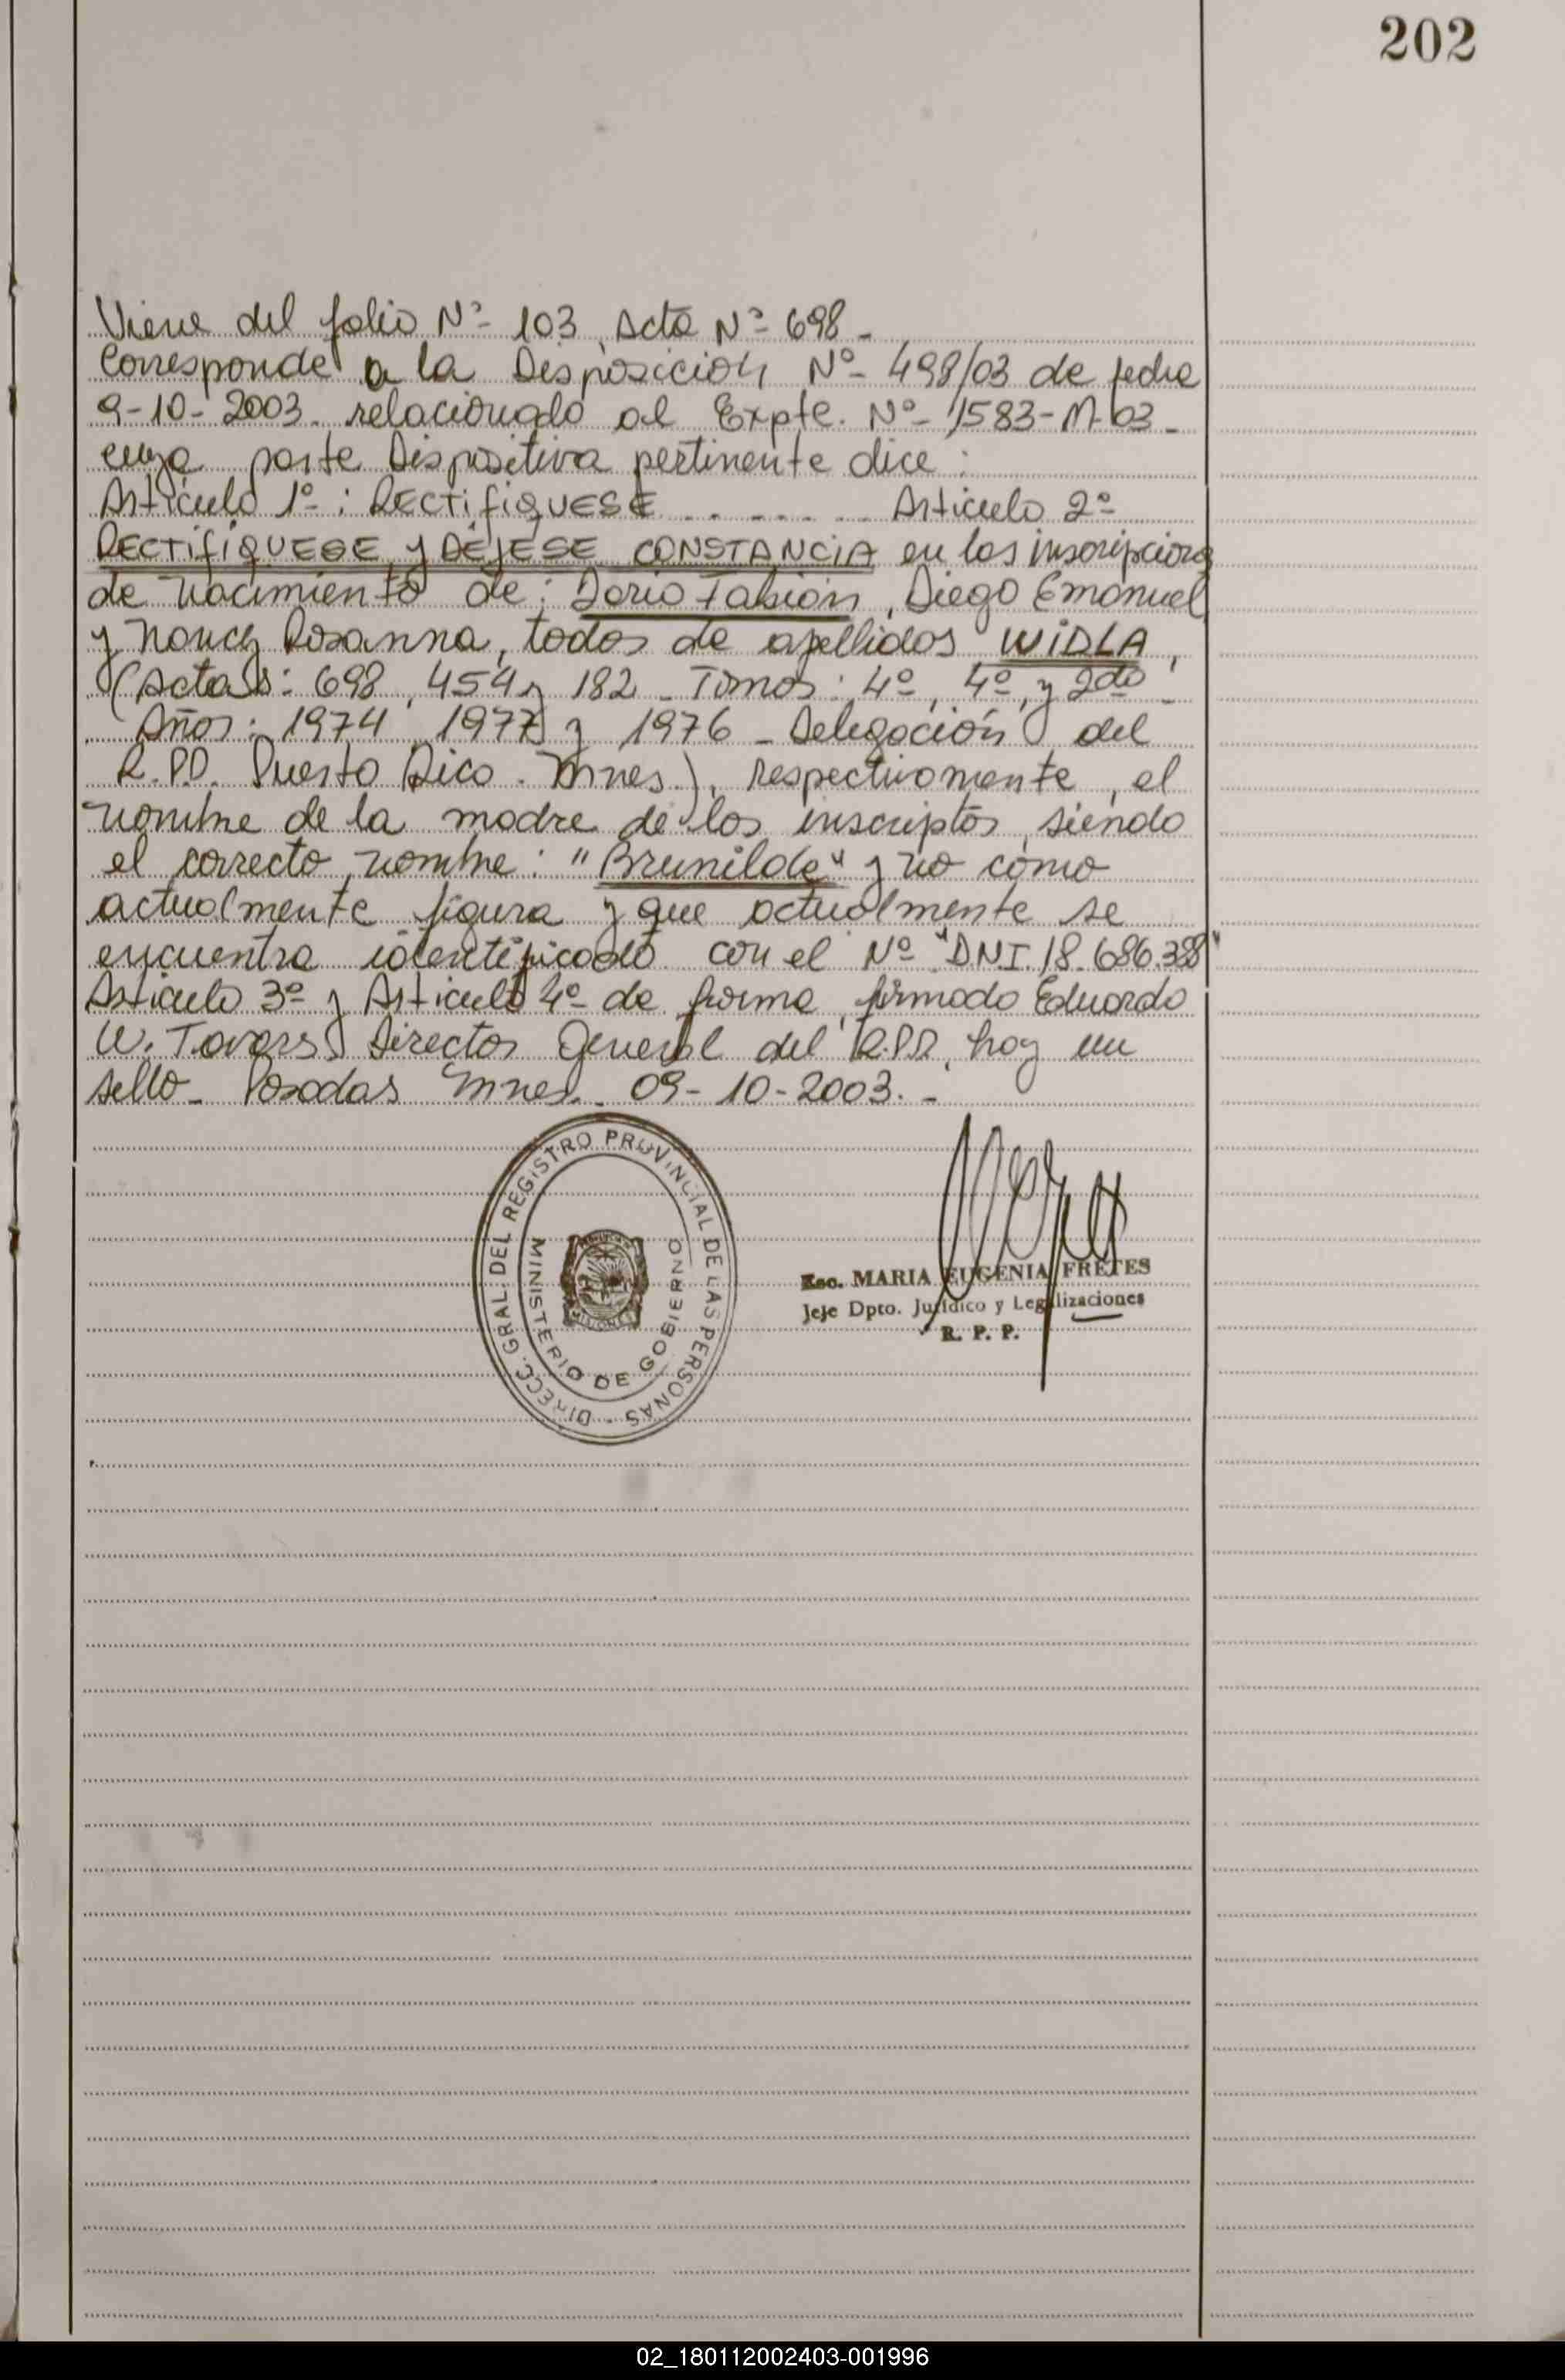 202
Viene del folio Nº 103, Acta Nº 698-
Corresponde a la Disposición Nº 498/03 de fecha
9-10-2003- relacionado al Expte. Nº 1583-M-03-
cuya parte Dispositiva pertinente dice:
Artículo 1º: RECTIFIQUESE ........ Artículo 2º
RECTIFIQUESE y DEJESE CONSTANCIA en las inscripciones
de nacimiento de: Dario Fabian, Diego Emanuel
y Nancy Rosanna, todos de apellidos WIDLA,
(Actas: 698, 454 y 182 - Tomos: 4º, 4º, y 2do -
Años: 1974, 1977 y 1976 - Delegación del
R.P.P. Puerto Rico. Mnes.), respectivamente, el
nombre de la madre de los inscriptos, siendo
el correcto nombre: "Brunilde" y no como
actualmente figura y que actualmente se
encuentra identificado con el Nº "DNI. 18.686.
Artículo 3º y Artículo 4º de forma, firmado Eduardo
W. Director General del R.P.P., hay un
sello- Posadas Mnes. 09-10-2003.-
DIRECC. GRAL. DEL REGISTRO PROVINCIAL DE LAS PERSONAS
MINISTERIO DE GOBIERNO
MISIONES
Esc. MARIA EUGENIA FRETES
Jefe Dpto. Jurídico y Legalizaciones
R. P. P.
02_180112002403-001996